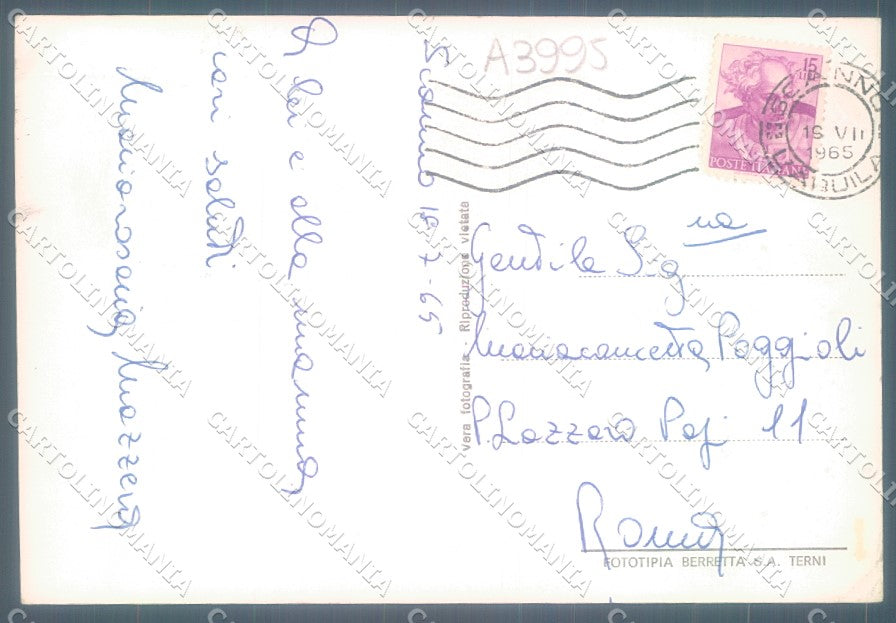 A3995
Scanno 18-7-65
A lei e alla mamma,
cari saluti
Mariarosaria Mazzera
15
LIRE
POSTE ITALIANE
SCANNO
18 VII
1965
L'AQUILA
Gentile Sig.na
Mariaconcetta Poggioli
P. Lazzaro Papi 11
Roma
Vera fotografia - Riproduzione vietata
FOTOTIPIA BERRETTA S.A. TERNI
CARTOLINOMANIA